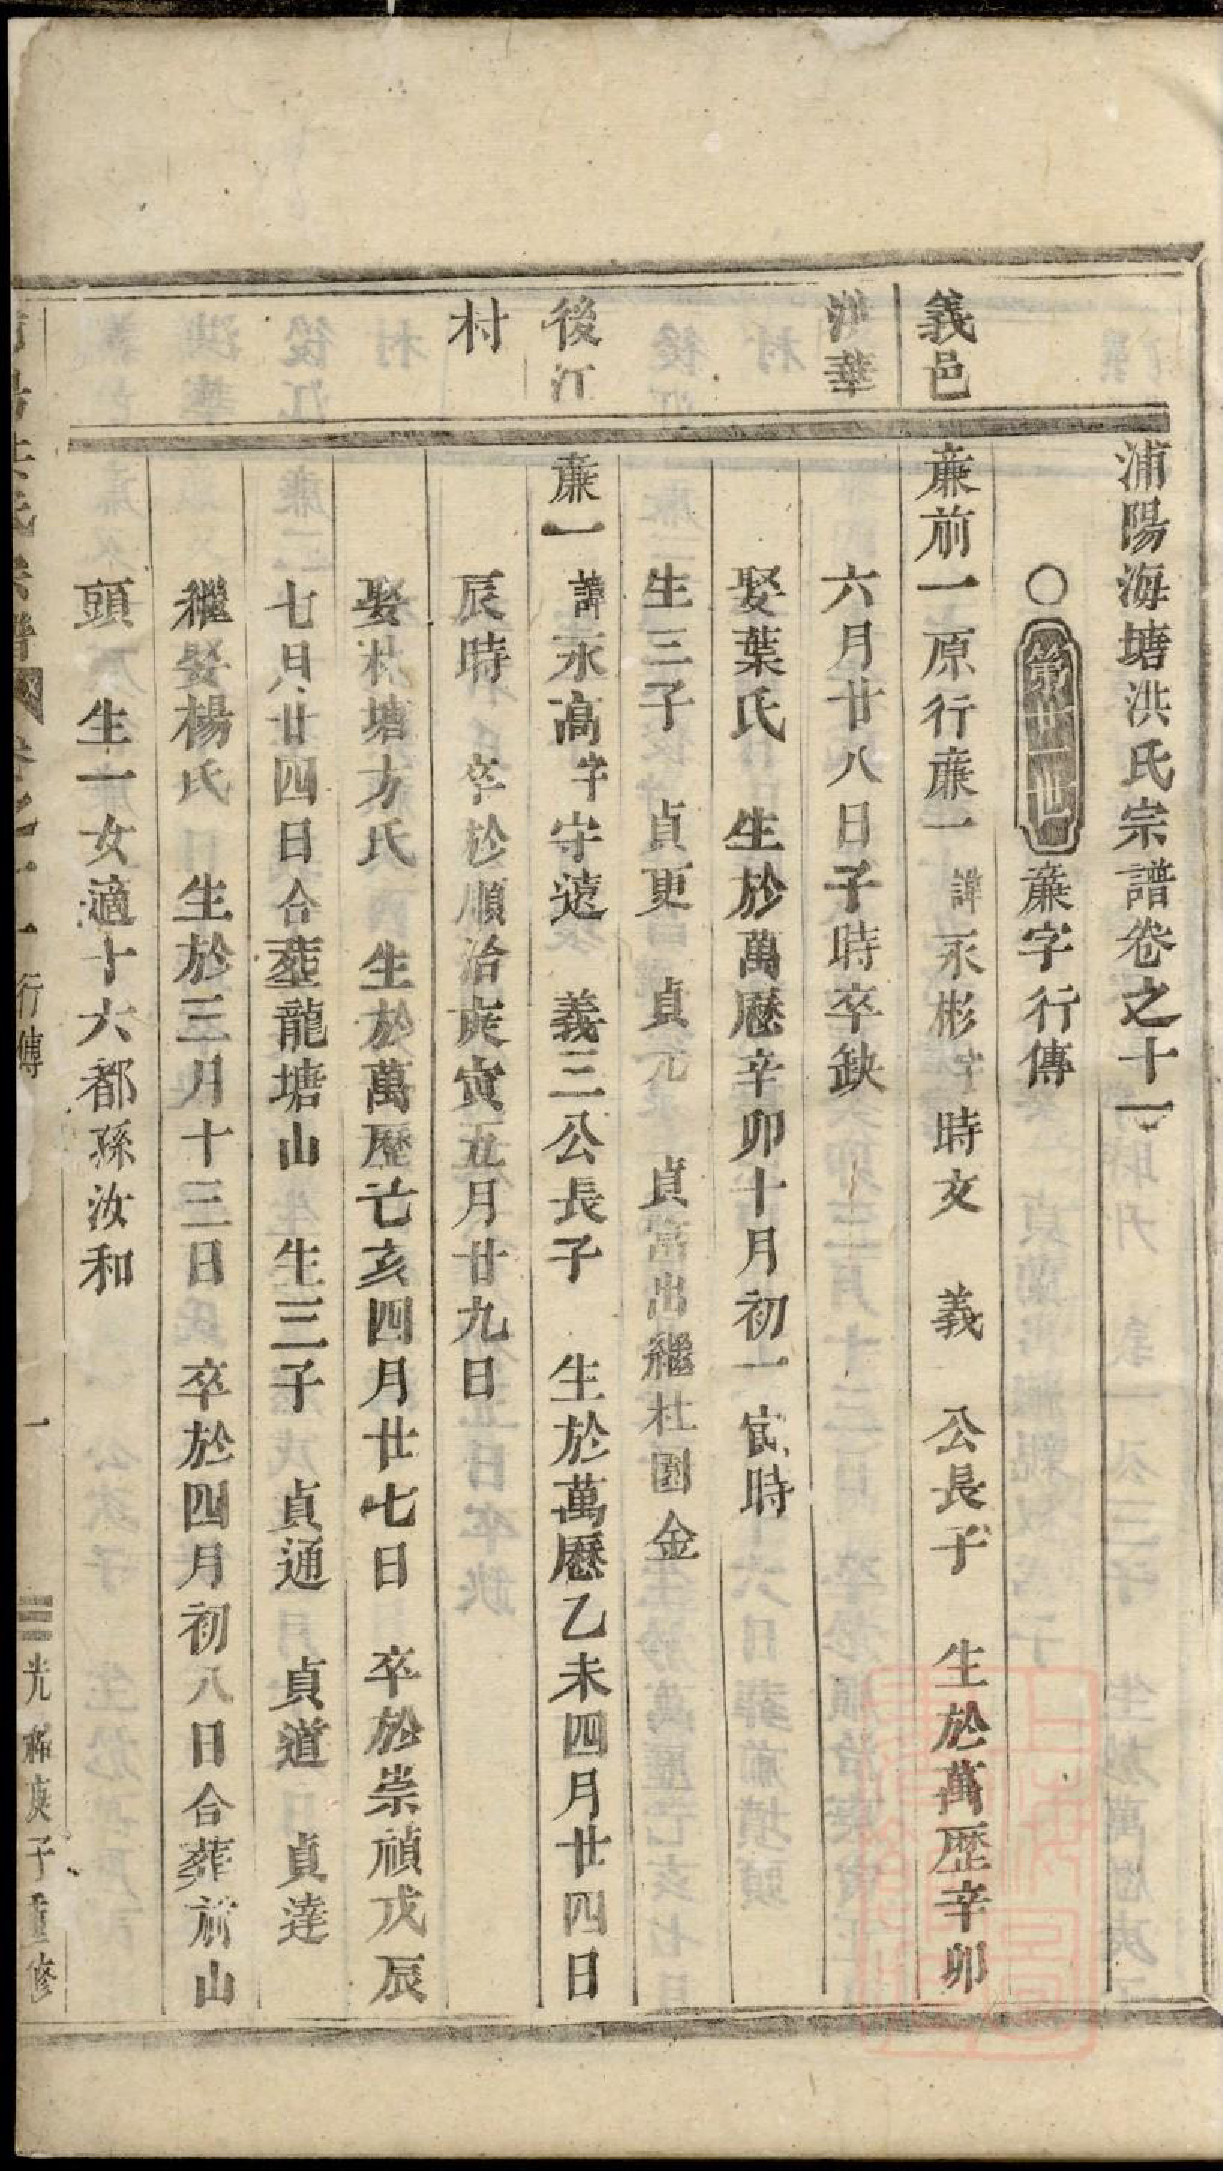 浦陽海塘洪氏宗譜卷之十一
○第廿一世 亷字行傳
義邑
亷前一原行亷一諱永彬字時文 義 公長子 生於萬歷辛卯
洪華
六月廿八日子時卒缺
娶葉氏 生於萬歷辛卯十月初一 時
生三子 貞更 貞元 貞富出繼杜園金
後江
亷一諱永高字守遠 義三公長子 生於萬歷乙未四月廿四日
村
辰時 卒於順治庚寅五月廿九日
娶朴塘方氏 生於萬歷亥四月廿七日 卒於崇禎戊辰
七月廿四日合塟龍塘山 生三子 貞通 貞道 貞達
繼娶楊氏 生於三月十三日 卒於四月初八日合葬前山
頭 生一女適十六都孫汝和
行傳 一 光緒庚子重修